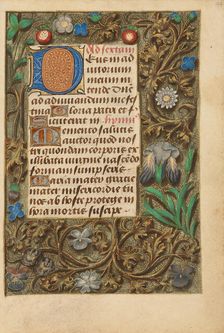 Ad sextam
Deus in ad
iutorium
meum in
tende Dne
ad adiuuandum me festina
Gloria patri et
sicut erat in
Memento salutis
auctor quod nostri
quondam corporis ex
illibata uirgine nascendo
formam sumpseris
Maria mater gratie
mater misericordie tu
nos ab hoste protege in
hora mortis suscipe